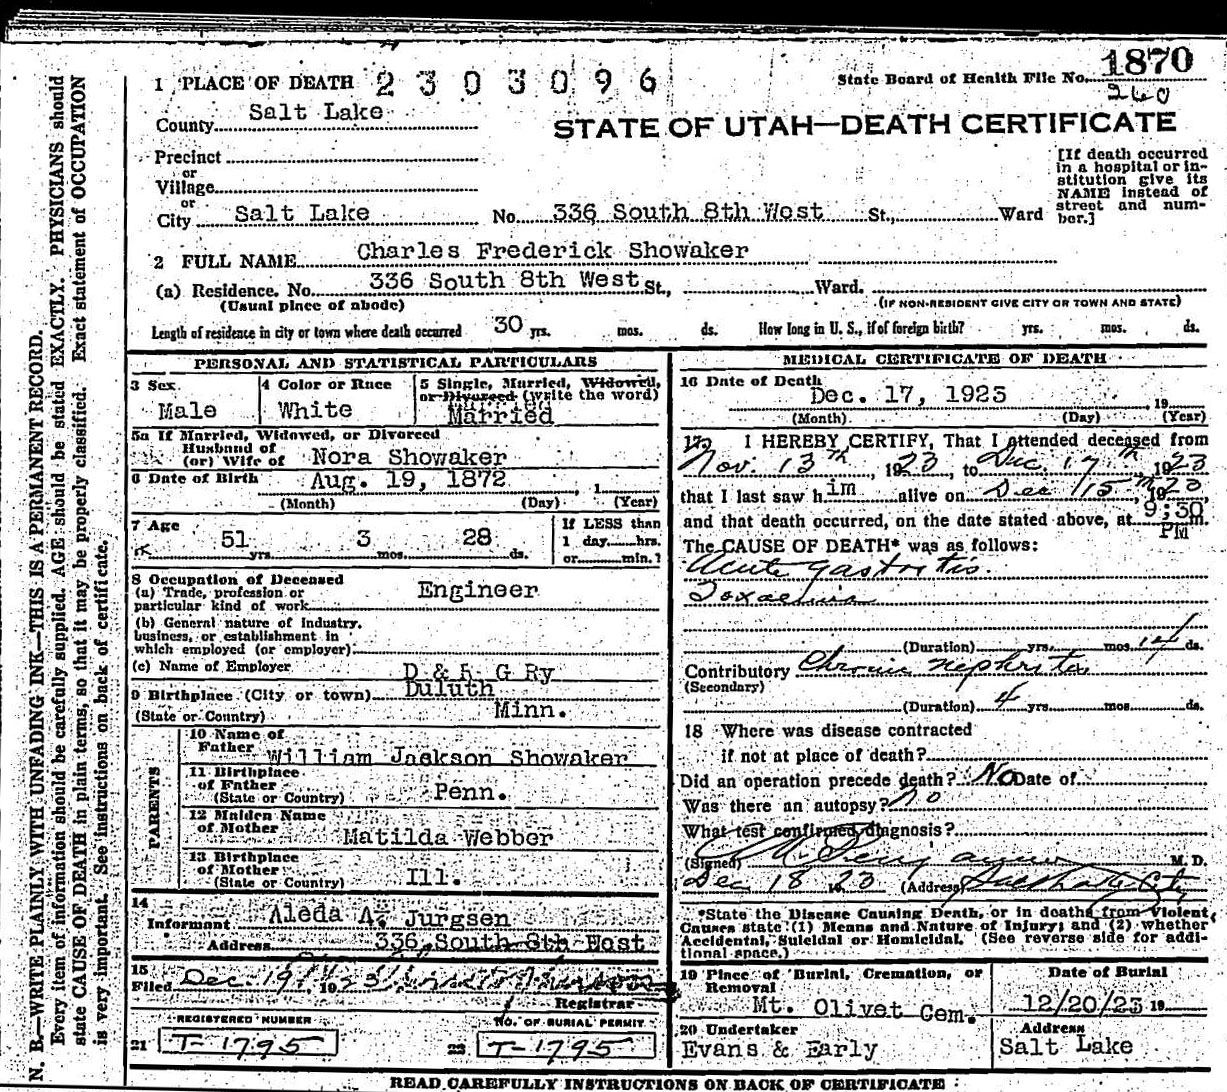 1 PLACE OF DEATH 2303096
State Board of Health File No. 1870
260
County Salt Lake
STATE OF UTAH—DEATH CERTIFICATE
Precinct
or
Village
or
City Salt Lake No. 336 South 8th West St., Ward
[If death occurred
in a hospital or in-
stitution give its
NAME instead of
street and num-
ber.]
2 FULL NAME Charles Frederick Showaker
(a) Residence. No. 336 South 8th West St., Ward.
(Usual place of abode) (IF NON-RESIDENT GIVE CITY OR TOWN AND STATE)
Length of residence in city or town where death occurred 30 yrs. mos. ds. How long in U. S., if of foreign birth? yrs. mos. ds.
PERSONAL AND STATISTICAL PARTICULARS
3 Sex. Male
4 Color or Race White
5 Single, Married, Widowed,
or Divorced (write the word)
Married
5a If Married, Widowed, or Divorced
Husband of
(or) Wife of Nora Showaker
6 Date of Birth Aug. 19, 1872, 1
(Month) (Day) (Year)
7 Age 51 yrs. 3 mos. 28 ds.
If LESS than
1 day hrs.
or min.?
8 Occupation of Deceased
(a) Trade, profession or
particular kind of work Engineer
(b) General nature of industry,
business, or establishment in
which employed (or employer)
(c) Name of Employer D & R G Ry
9 Birthplace (City or town) Duluth
(State or Country) Minn.
PARENTS
10 Name of
Father William Jackson Showaker
11 Birthplace
of Father
(State or Country) Penn.
12 Maiden Name
of Mother Matilda Webber
13 Birthplace
of Mother
(State or Country) Ill.
14
Informant Aleda A. Jurgsen
Address 336 South 8th East
15
Filed Dec. 19, 1923
Registrar
REGISTERED NUMBER
21 T-1795
NO. OF BURIAL PERMIT
22 T-1795
MEDICAL CERTIFICATE OF DEATH
16 Date of Death
Dec. 17, 1923 19
(Month) (Day) (Year)
17 I HEREBY CERTIFY, That I attended deceased from
Nov. 13th, 1923, to Dec. 17th, 1923
that I last saw him alive on Dec 15th, 1923,
and that death occurred, on the date stated above, at 9:30 m.
PM
The CAUSE OF DEATH* was as follows:
Acute gastritis.
Toxaemia
(Duration) yrs. mos. 14 ds.
Contributory Chronic Nephritis
(Secondary)
(Duration) 4 yrs. mos. ds.
18 Where was disease contracted
if not at place of death?
Did an operation precede death? No Date of
Was there an autopsy? No
What test confirmed diagnosis?
(Signed) M. D.
Dec 18 1923 (Address) Salt Lake City
*State the Disease Causing Death, or in deaths from Violent
Causes state (1) Means and Nature of Injury; and (2) whether
Accidental, Suicidal or Homicidal. (See reverse side for addi-
tional space.)
19 Place of Burial, Cremation, or
Removal
Mt. Olivet Cem.
Date of Burial
12/20/23 19
20 Undertaker
Evans & Early
Address
Salt Lake
READ CAREFULLY INSTRUCTIONS ON BACK OF CERTIFICATE
N. B.—WRITE PLAINLY WITH UNFADING INK—THIS IS A PERMANENT RECORD.
Every item of information should be carefully supplied. AGE should be stated EXACTLY. PHYSICIANS should
state CAUSE OF DEATH in plain terms, so that it may be properly classified. Exact statement of OCCUPATION
is very important. See instructions on back of certificate.